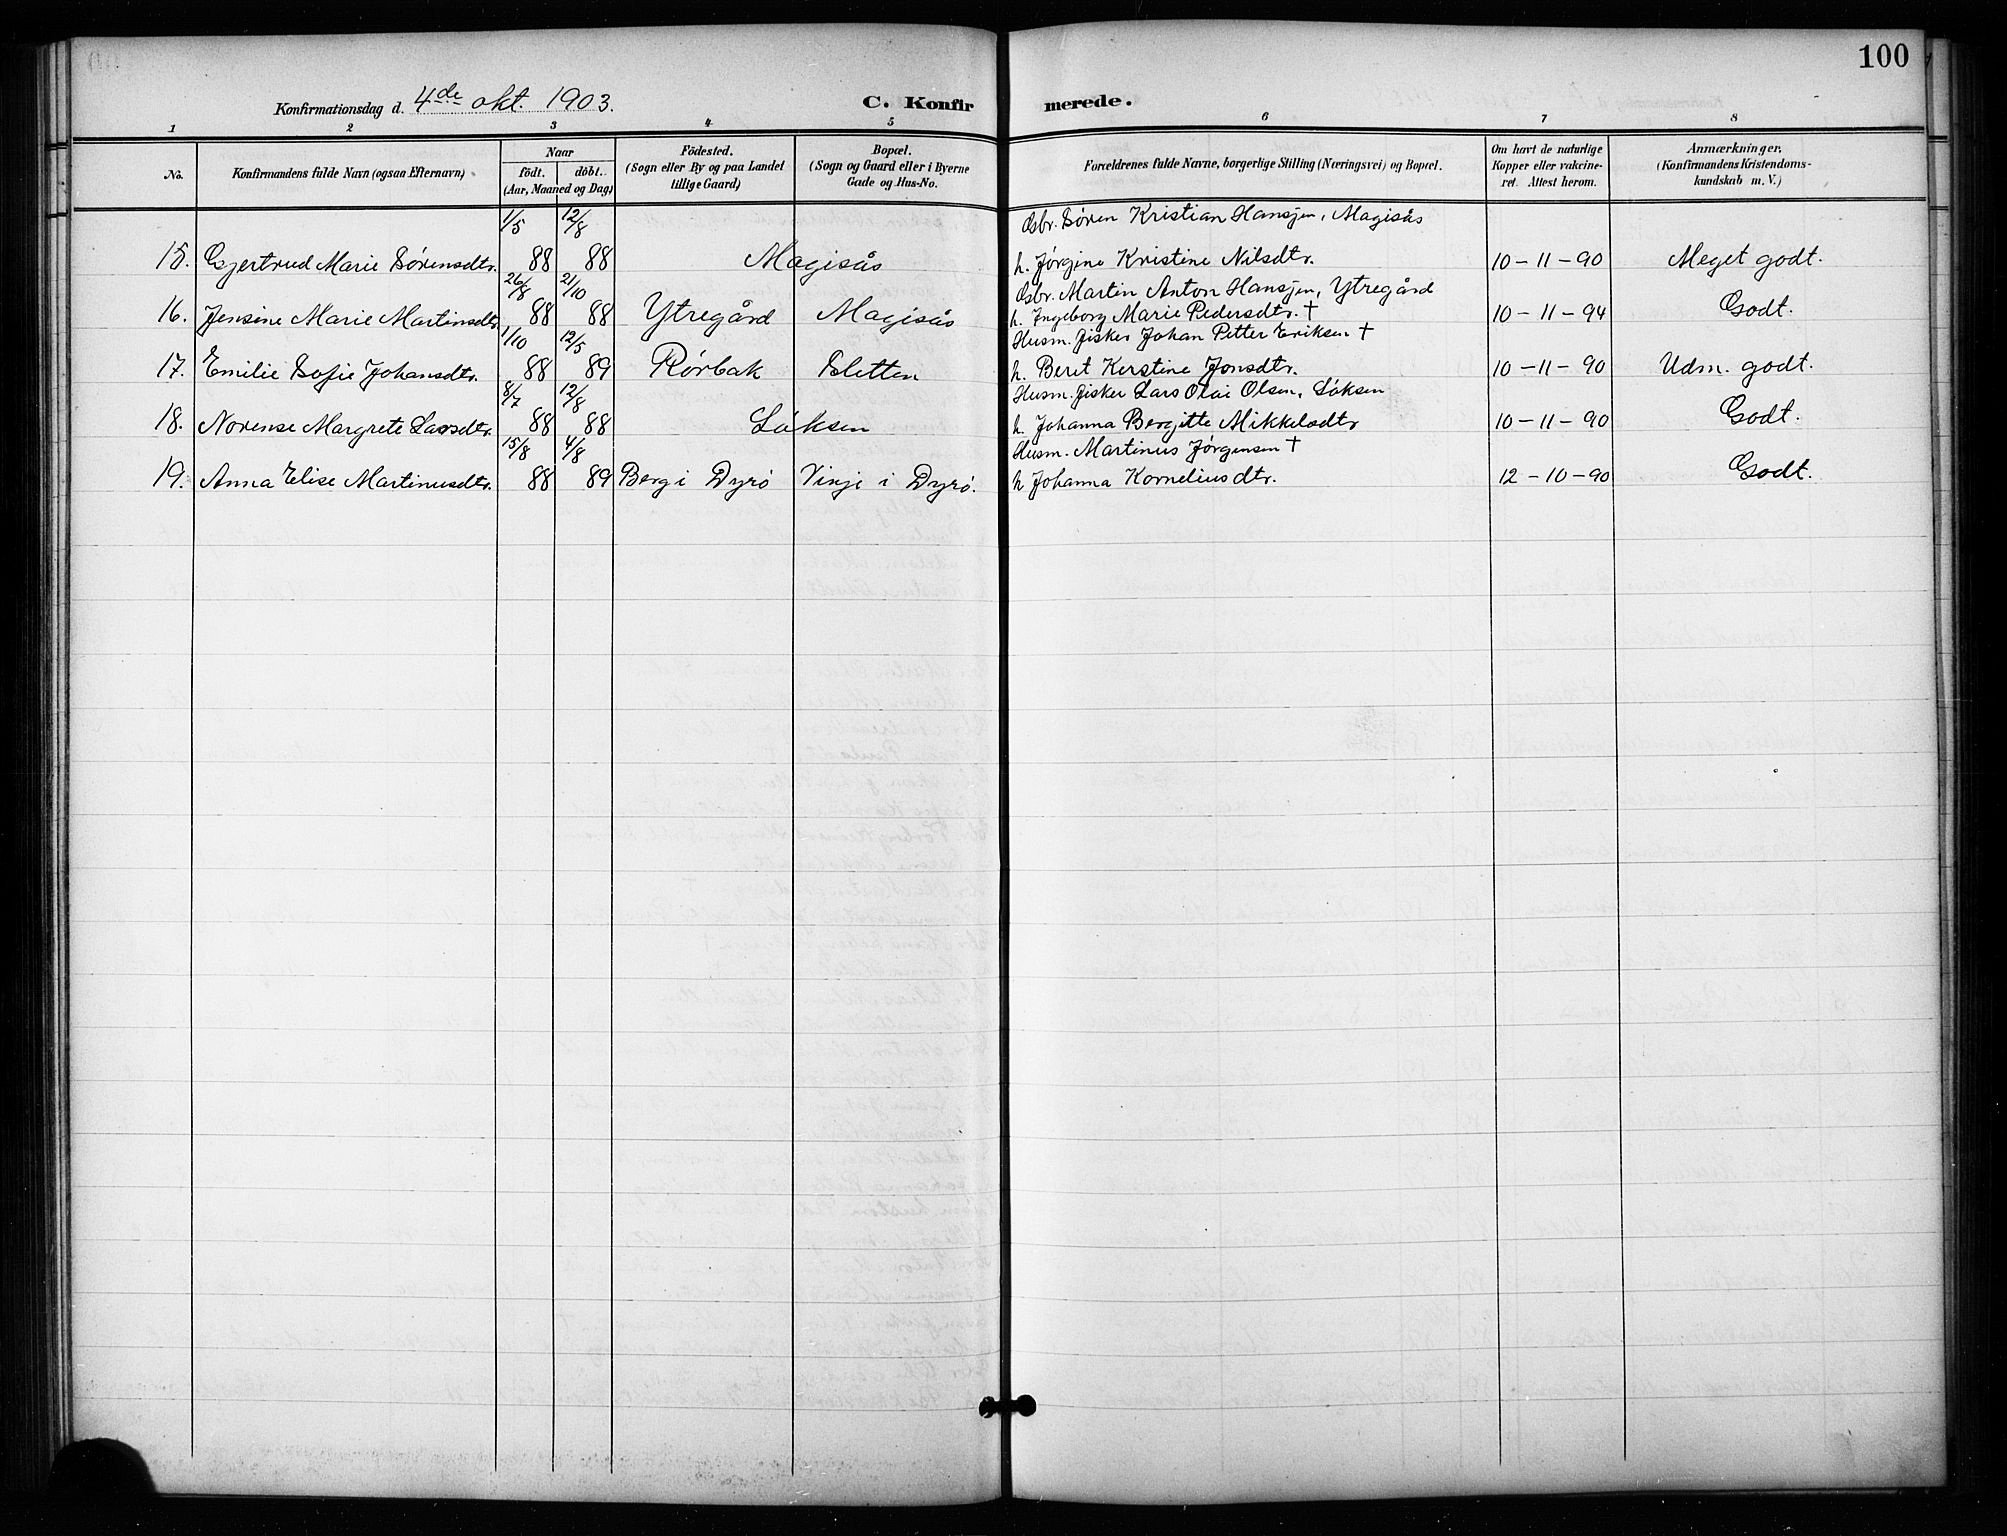 100
Konfirmationsdag d. 4de okt. 1903.
C. Konfirmerede.
1 2 3 4 5 6 7 8
No.
Konfirmandens fulde Navn (ogsaa Efternavn)
Naar
födt. döbt.
(Aar, Maaned og Dag)
Födested.
(Sogn eller By og paa Landet tillige Gaard)
Bopæl.
(Sogn og Gaard eller i Byerne Gade og Hus-No.
Forældrenes fulde Navne, borgerlige Stilling (Næringsvei) og Bopæl.
Om havt de naturlige Kopper eller vakcineret. Attest herom.
Anmærkninger.
(Konfirmandens Kristendomskundskab m. V.)
1/5 12/8 Gsbr. Sören Kristian Hansjen, Magisås
15. Gjertrud Marie Sörensdtr. 88 88 Magisås h. Jørgine Kristine Nilsdtr. 10-11-90 Meget godt.
26/8 21/10 Gsbr. Martin Anton Hansjen, Ytregård
16. Jensine Marie Martinsdtr 88 88 Ytregård Magisås h. Ingeborg Marie Pedersdtr. † 10-11-94 Godt.
1/10 12/5 Husm. fisker Johan Petter Eriksen †
17. Emilie Sofie Johansdtr. 88 89 Rörbak Sletten h. Beret Kerstine Jonsdtr. 10-11-90 Udm. godt.
8/7 12/8 Husm. fisker Lars Olai Olsen, Löksen
18. Norense Margrete Larsdtr. 88 88 Löksen h. Johanna Bergitte Mikkelsdtr 10-11-90 Godt.
15/8 4/8 Husm. Martinus Jørgensen †
19. Anna Elise Martinusdtr. 88 89 Berg i Dyrö Vinje i Dyrö. h Johanna Korneliusdtr. 12-10-90 Godt.